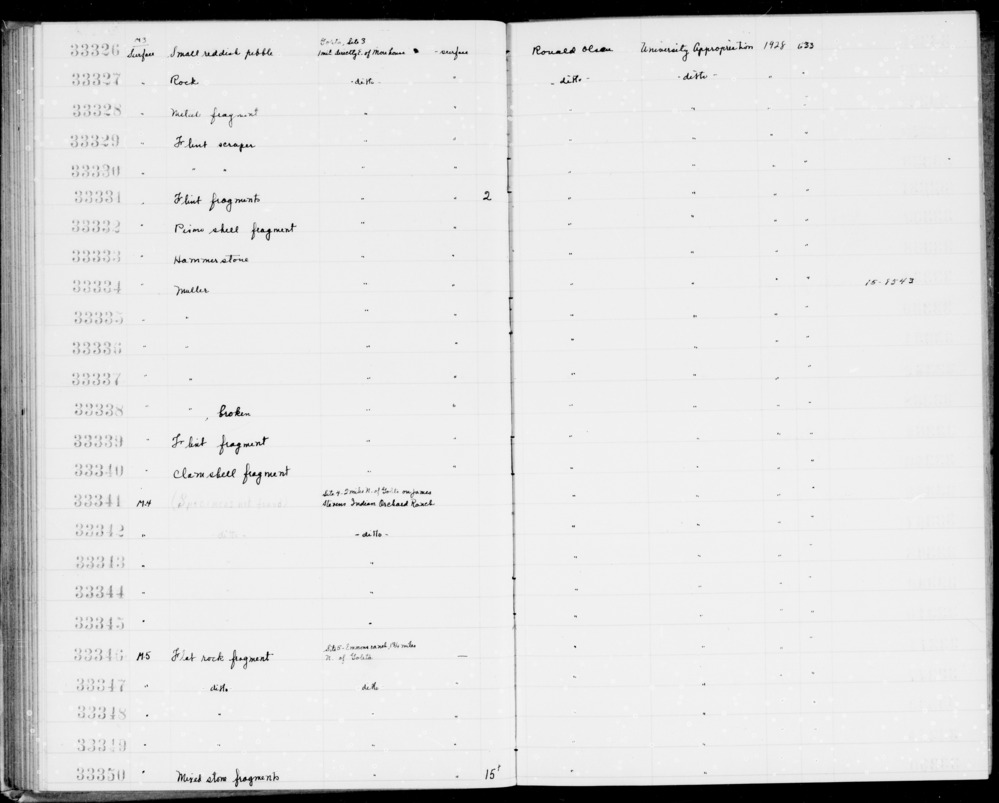 M3 Goite, Site 3
33326 Surface Small reddish pebble 1 mit directly E. of More house - surface Ronald Olson University Appropriation 1928 633
33327 " Rock - ditto - " - ditto - - ditto - " "
33328 " Metal fragment " " " " " "
33329 " Flint scraper " " " " " "
33330 " " " " " " " " "
33331 " Flint fragments " " 2 " " " "
33332 " Pismo shell fragment " " " " " "
33333 " Hammerstone " " " " " "
33334 " Muller " " " " " " 15-8543
33335 " " " " " " " "
33336 " " " " " " " "
33337 " " " " " " " "
33338 " " , broken " " " " " "
33339 " Flint fragment " " " " " "
33340 " Clam shell fragment " " " " " "
Site 4 - 2 miles N. of Goleta on James
33341 M4 (Specimens not found) Stevens Indian Orchard Ranch " " " "
33342 " ditto - - ditto - " " " "
33343 " " " " " "
33344 " " " " " "
33345 " " " " " "
Site 5 - ranch, 1 3/4 miles
33346 M5 Flat rock fragment N. of Goleta — " " " "
33347 " ditto ditto " " " "
33348 " " " " " " " "
33349 " " " " " " " "
33350 " Mixed stone fragments " " 15 " " " "